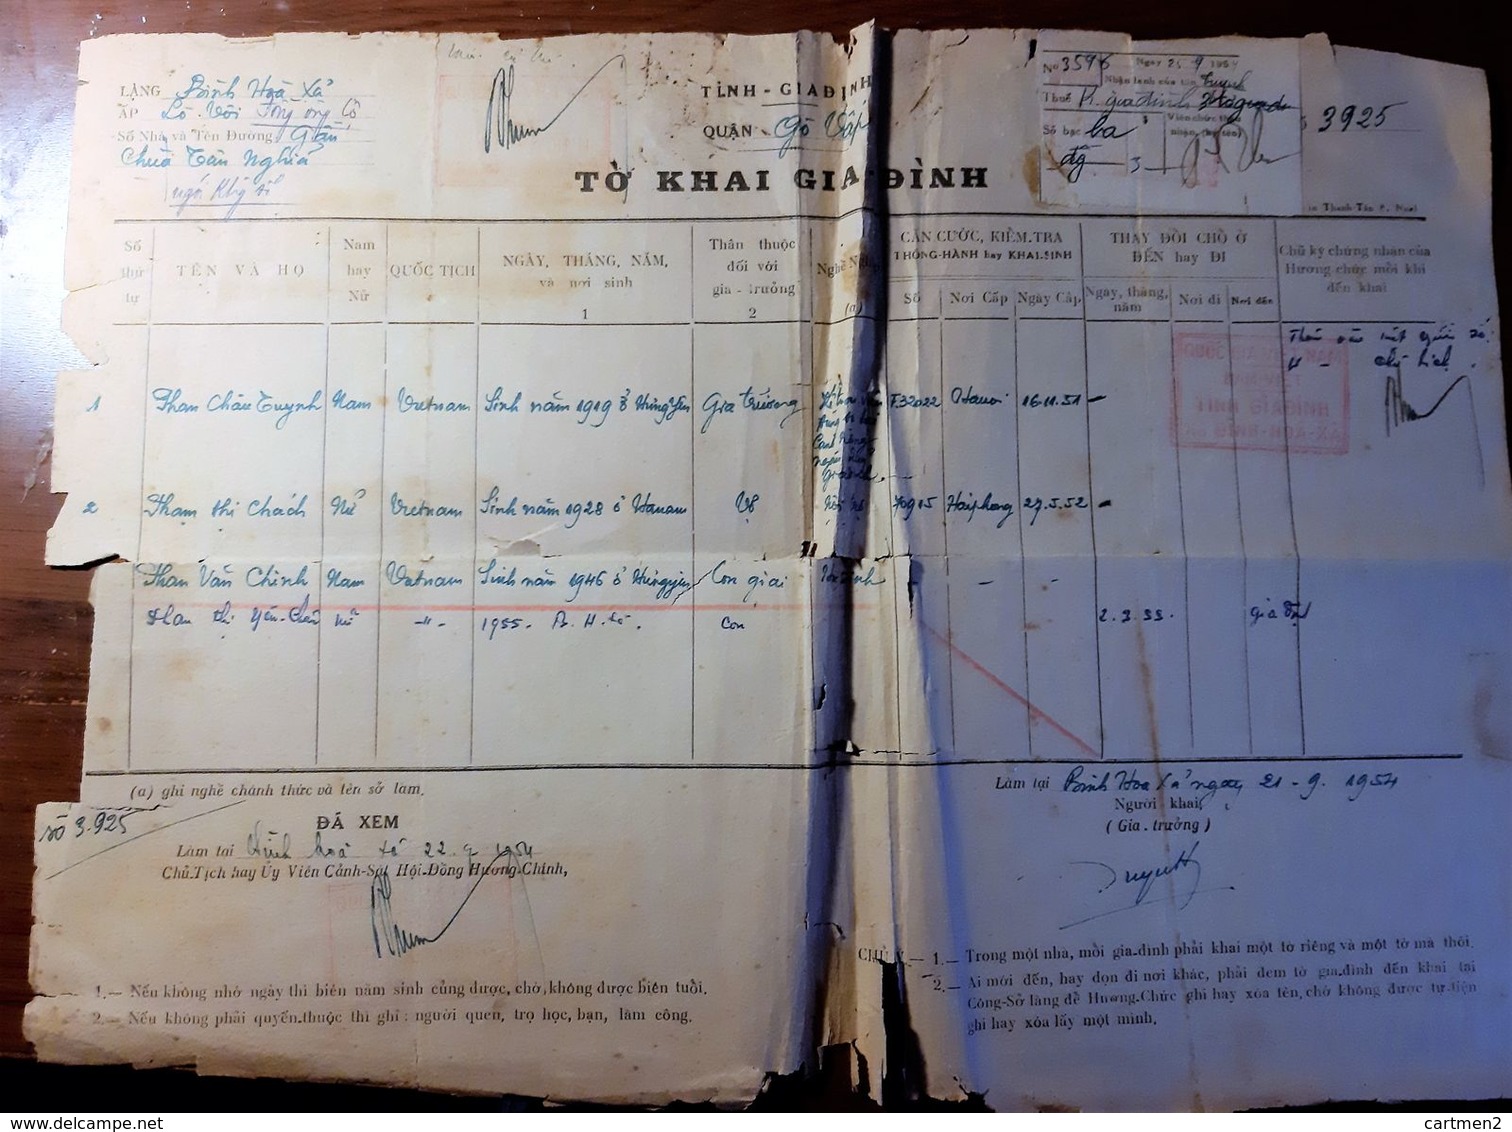 LÀNG Bình Hoà Xã
ẤP Lò Vôi
Số Nhà và Tên Đường Gần
Chùa Tân Nghĩa
TỈNH - GIA ĐỊNH
QUẬN Gò Vấp
TỜ KHAI GIA ĐÌNH
No 3596 Ngày 25 9 1954
Nhận lãnh của tên Tuynh
Thuế gia đình
Số bạc ba Viên chức thâu
nhận, (ký tên)
đg 3
3925
Số thứ tự
TÊN VÀ HỌ
Nam hay Nữ
QUỐC TỊCH
NGÀY, THÁNG, NĂM, và nơi sinh 1
Thân thuộc đối với gia - trưởng 2
(a)
CĂN CƯỚC, KIỂM-TRA
THÔNG-HÀNH hay KHAI-SINH
Số Nơi Cấp Ngày Cấp
THAY ĐỔI CHỖ Ở
ĐẾN hay ĐI
Ngày, tháng, năm Nơi đi Nơi đến
Chữ ký chứng nhận của
Hương-chức mỗi khi
đến khai
1 Phan Châu Tuynh Nam Vietnam Sinh năm 1919 ở Hưng Yên Gia trưởng F.32022 Hanoi 16.11.51 -
2 Phạm thị Chách Nữ Vietnam Sinh năm 1928 ở Hanam Vợ 70915 Haiphong 27.5.52 -
Phan Văn Chinh Nam Vietnam Sinh năm 1946 ở Hưngyên Con giai - - -
Phan thị Yến-Châu nữ -"- 1955. B. H. Xã. Con 2.3.55. gia Định
(a) ghi nghề chánh thức và tên sở làm.
số 3.925
ĐÃ XEM
Làm tại Bình hoà xã 22 9 1954
Chủ-Tịch hay Ủy Viên Cảnh-Sát Hội-Đồng Hương-Chính,
Làm tại Bình Hoà Xã ngày 21 - 9. 1954
Người khai,
( Gia - trưởng )
Tuynh
1.— Nếu không nhớ ngày thì biên năm sinh cũng được, chớ không được biên tuổi.
2.— Nếu không phải quyến-thuộc thì ghi : người quen, trọ học, bạn, làm công.
CHÚ Ý — 1.— Trong một nhà, mỗi gia-đình phải khai một tờ riêng và một tờ mà thôi.
2.— Ai mới đến, hay dọn đi nơi khác, phải đem tờ gia-đình đến khai tại
Công-Sở làng để Hương-Chức ghi hay xóa tên, chớ không được tự-tiện
ghi hay xóa lấy một mình.
cartmen2